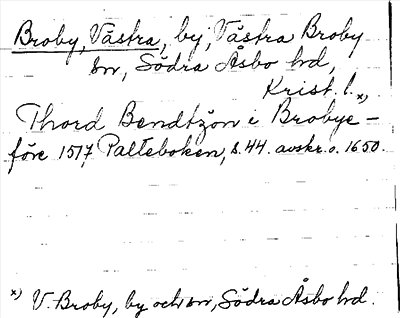 Broby, Västra, by, Västra Broby
sn, Södra Åsbo hd,
Krist. l. x)
Thord Bendtzön i Brobye –
före 1517 Palteboken, s. 44. avskr. o. 1650.
x) V. Broby, by och sn, Södra Åsbo hd.